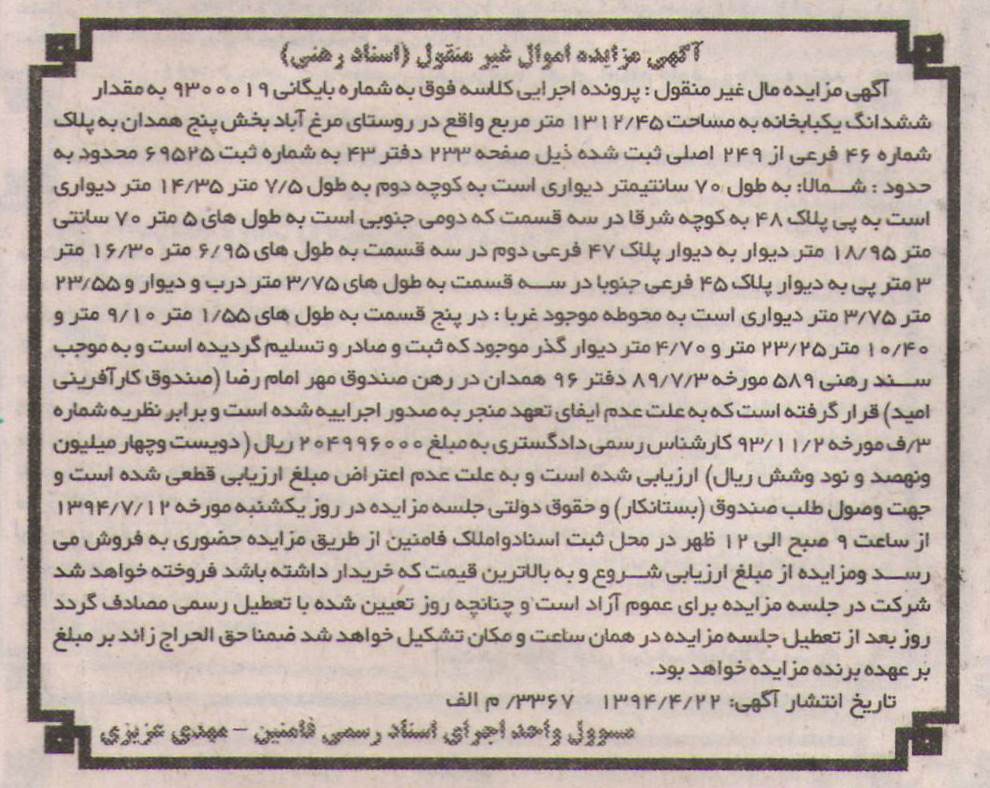 آگهی مزایده اموال غیر منقول (اسناد رهنی)
آگهی مزایده مال غیر منقول : پرونده اجرایی کلاسه فوق به شماره بایگانی ۹۳۰۰۰۱۹ به مقدار
ششدانگ یکبابخانه به مساحت ۱۳۱۲/۴۵ متر مربع واقع در روستای مرغ آباد بخش پنج همدان به پلاک
شماره ۴۶ فرعی از ۲۴۹ اصلی ثبت شده ذیل صفحه ۲۳۳ دفتر ۴۳ به شماره ثبت ۶۹۵۲۵ محدود به
حدود : شمالا: به طول ۷۰ سانتیمتر دیواری است به کوچه دوم به طول ۷/۵ متر ۱۴/۳۵ متر دیواری
است به پی پلاک ۴۸ به کوچه شرقا در سه قسمت که دومی جنوبی است به طول های ۵ متر ۷۰ سانتی
متر ۱۸/۹۵ متر دیوار به دیوار پلاک ۴۷ فرعی دوم در سه قسمت به طول های ۶/۹۵ متر ۱۶/۳۰ متر
۳ متر پی به دیوار پلاک ۴۵ فرعی جنوبا در سه قسمت به طول های ۳/۷۵ متر درب و دیوار و ۲۳/۵۵
متر ۳/۷۵ متر دیواری است به محوطه موجود غربا : در پنج قسمت به طول های ۱/۵۵ متر ۹/۱۰ متر و
۱۰/۴۰ متر ۲۳/۲۵ متر و ۴/۷۰ متر دیوار گذر موجود که ثبت و صادر و تسلیم گردیده است و به موجب
سند رهنی ۵۸۹ مورخه ۸۹/۷/۳ دفتر ۹۶ همدان در رهن صندوق مهر امام رضا (صندوق کارآفرینی
امید) قرار گرفته است که به علت عدم ایفای تعهد منجر به صدور اجراییه شده است و برابر نظریه شماره
۳/ف مورخه ۹۳/۱۱/۲ کارشناس رسمی دادگستری به مبلغ ۲۰۴۹۹۶۰۰۰ ریال (دویست وچهار میلیون
ونهصد و نود وشش ریال) ارزیابی شده است و به علت عدم اعتراض مبلغ ارزیابی قطعی شده است و
جهت وصول طلب صندوق (بستانکار) و حقوق دولتی جلسه مزایده در روز یکشنبه مورخه ۱۳۹۴/۷/۱۲
از ساعت ۹ صبح الی ۱۲ ظهر در محل ثبت اسنادواملاک فامنین از طریق مزایده حضوری به فروش می
رسد ومزایده از مبلغ ارزیابی شروع و به بالاترین قیمت که خریدار داشته باشد فروخته خواهد شد
شرکت در جلسه مزایده برای عموم آزاد است و چنانچه روز تعیین شده با تعطیل رسمی مصادف گردد
روز بعد از تعطیل جلسه مزایده در همان ساعت و مکان تشکیل خواهد شد ضمنا حق الحراج زائد بر مبلغ
بر عهده برنده مزایده خواهد بود.
تاریخ انتشار آگهی: ۱۳۹۴/۴/۲۲ ۳۳۶۷/ م الف
مسوول واحد اجرای اسناد رسمی فامنین – مهدی عزیزی